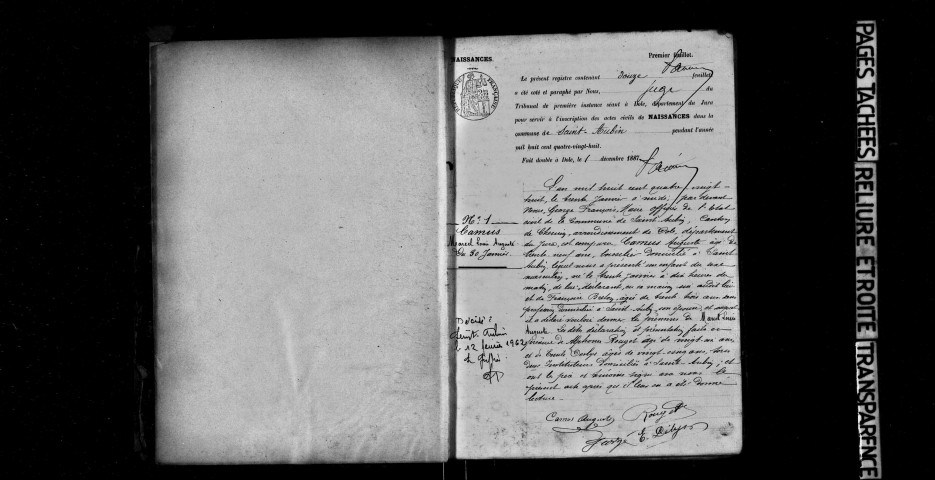 NAISSANCES.
Premier feuillet.
RÉPUBLIQUE FRANÇAISE
Le présent registre contenant douze feuillets
a été coté et paraphé par Nous, juge du
Tribunal de première instance séant à Dole, département du Jura
pour servir à l'inscription des actes civils de NAISSANCES dans la
commune de Saint-Aubin pendant l'année
mil huit cent quatre-vingt-huit.
Fait double à Dole, le 1 décembre 1887.
N° 1
Camus
Marcel Louis Auguste
Du 30 Janvier.
L'an mil huit cent quatre vingt
huit, le trente Janvier à midi, par devant
Nous, George François, Maire officier de l'état
civil de la Commune de Saint-Aubin, Canton
de Chemin, arrondissement de Dole, département
du Jura, est comparu Camus Auguste âgé de
trente neuf ans, domicilié à Saint
Aubin, lequel nous a présenté un enfant du sexe
masculin, né le trente Janvier à dix heures du
matin, de lui déclarant, en sa maison
et de Françoise âgée de trente trois ans sans
profession, domiciliée à Saint-Aubin, son épouse; et auquel
il a déclaré vouloir donner les prénoms de Marcel Louis
Auguste. Les dites déclaration et présentation faites en
présence de Rouget âgé de vingt un ans,
et de âgé de vingt cinq ans, tous
deux Instituteurs domiciliés à Saint-Aubin; et
ont le père et témoins signé avec nous le
présent acte après que lecture en a été donné
lecture.
Décédé à
Saint-Aubin
le 12 février 1962
Camus Auguste
Rouget
George